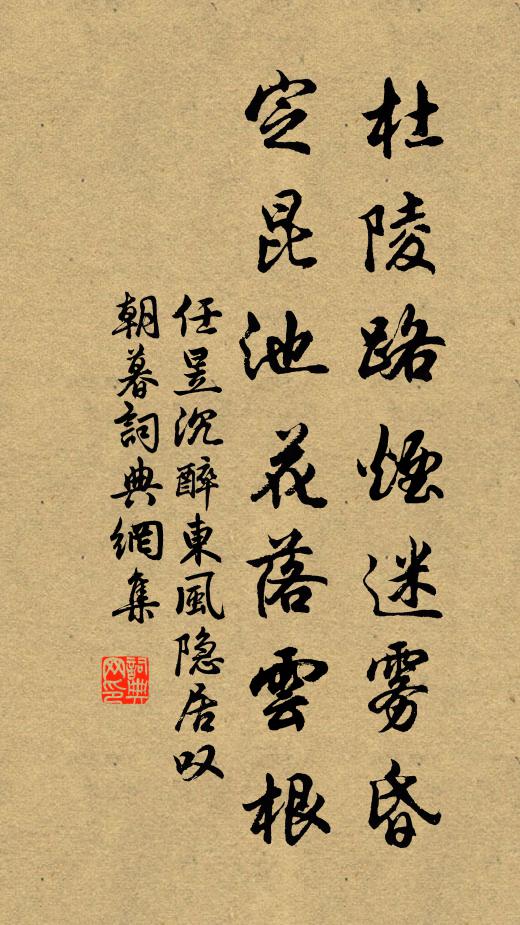 杜陵路煙迷雾昏
定昆池花落雲根
任昱沉醉東風隐居叹
朝暮詞典網集
詞典网印